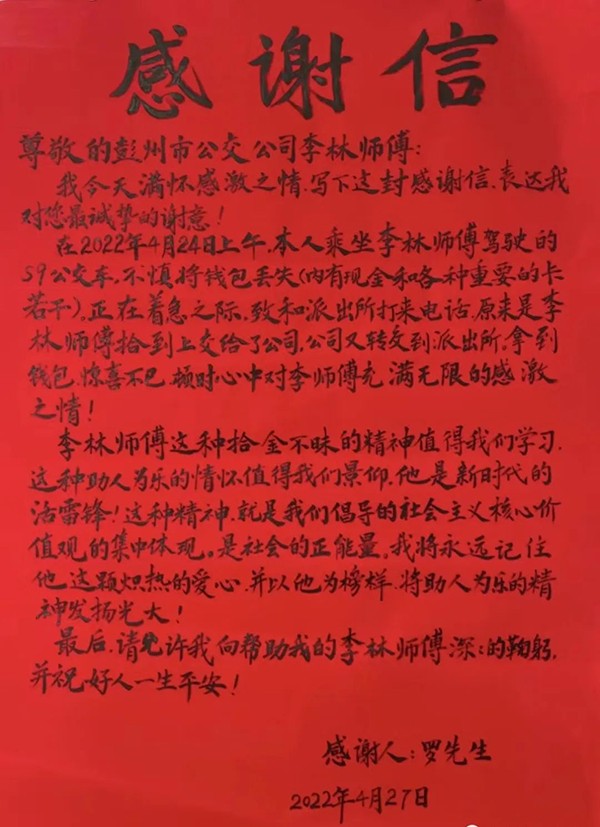 感谢信
尊敬的彭州市公交公司李林师傅：
我今天满怀感激之情，写下这封感谢信，表达我
对您最诚挚的谢意！
在2022年4月24日上午，本人乘坐李林师傅驾驶的
S9公交车，不慎将钱包丢失（内有现金和各种重要的卡
若干），正在着急之际，致和派出所打来电话，原来是李
林师傅拾到上交给了公司，公司又转交到派出所，拿到
钱包，惊喜不已，顿时心中对李师傅充满无限的感激
之情！
李林师傅这种拾金不昧的精神值得我们学习，
这种助人为乐的情怀值得我们景仰，他是新时代的
活雷锋！这种精神，就是我们倡导的社会主义核心价
值观的集中体现。是社会的正能量，我将永远记住
他这颗炽热的爱心，并以他为榜样，将助人为乐的精
神发扬光大！
最后，请允许我向帮助我的李林师傅深深的鞠躬，
并祝，好人一生平安！
感谢人：罗先生
2022年4月27日